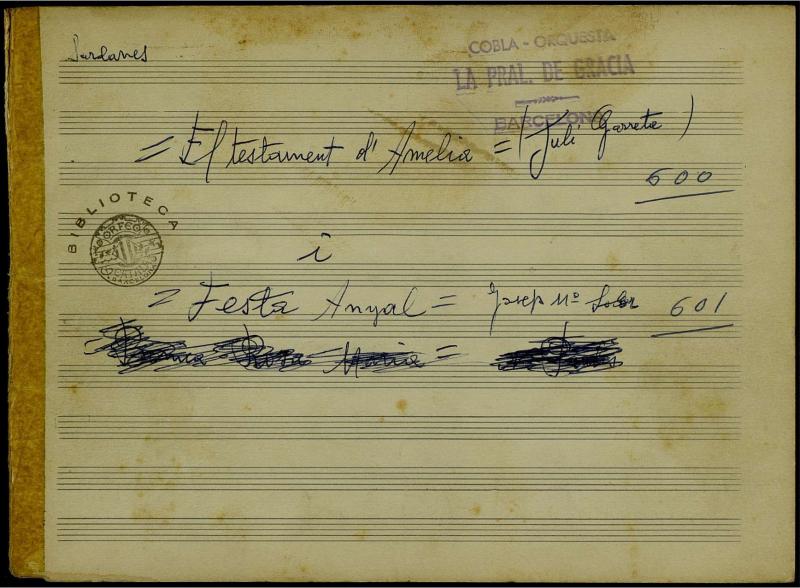 Sardanes
COBLA - ORQUESTA
LA PRAL. DE GRACIA
BARCELONA
= El testament d'Amelia = (Juli Garreta)
600
BIBLIOTECA
ORFEÓ CATALÀ
BARCELONA
i
= Festa Anyal = Josep Mª Soler 601
Rosa Maria =